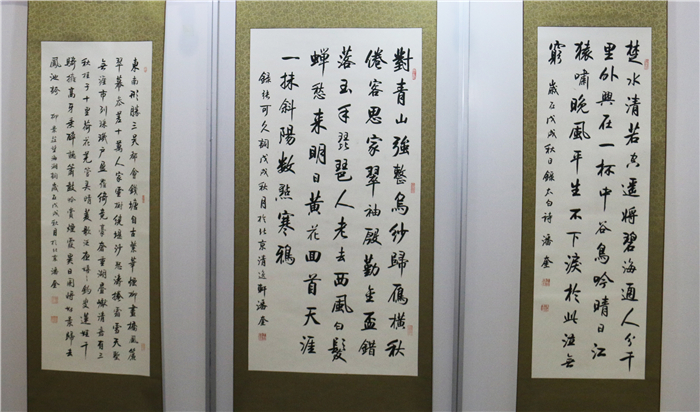 楚水清若空遥將碧海通人分千
里外興在一杯中谷鳥吟晴日江
猿嘯晚風平生不下淚於此泣無
窮 歲在戊戌秋日錄太白詩 潘奎
對青山強整烏紗歸雁橫秋
倦客思家翠袖殷勤金盃錯
落玉手琵琶人老去西風白髮
蟬愁來明日黄花回首天涯
一抹斜陽數點寒鴉
錄張可久詞戊戌秋月於北京清遠軒潘奎
東南形勝三吴都會錢塘自古繁華煙柳畫橋風簾
翠幕参差十萬人家雲樹繞堤沙怒濤捲霜雪天塹
無涯市列珠璣户盈羅綺競豪奢重湖疊巘清嘉有三
秋桂子十里荷花羌管弄晴菱歌泛夜嬉嬉釣叟蓮娃千
騎擁高牙乘醉聽簫鼓吟賞煙霞異日圖將好景歸去
鳳池誇 柳永望海潮詞歲在戊戌秋月於北京 潘奎